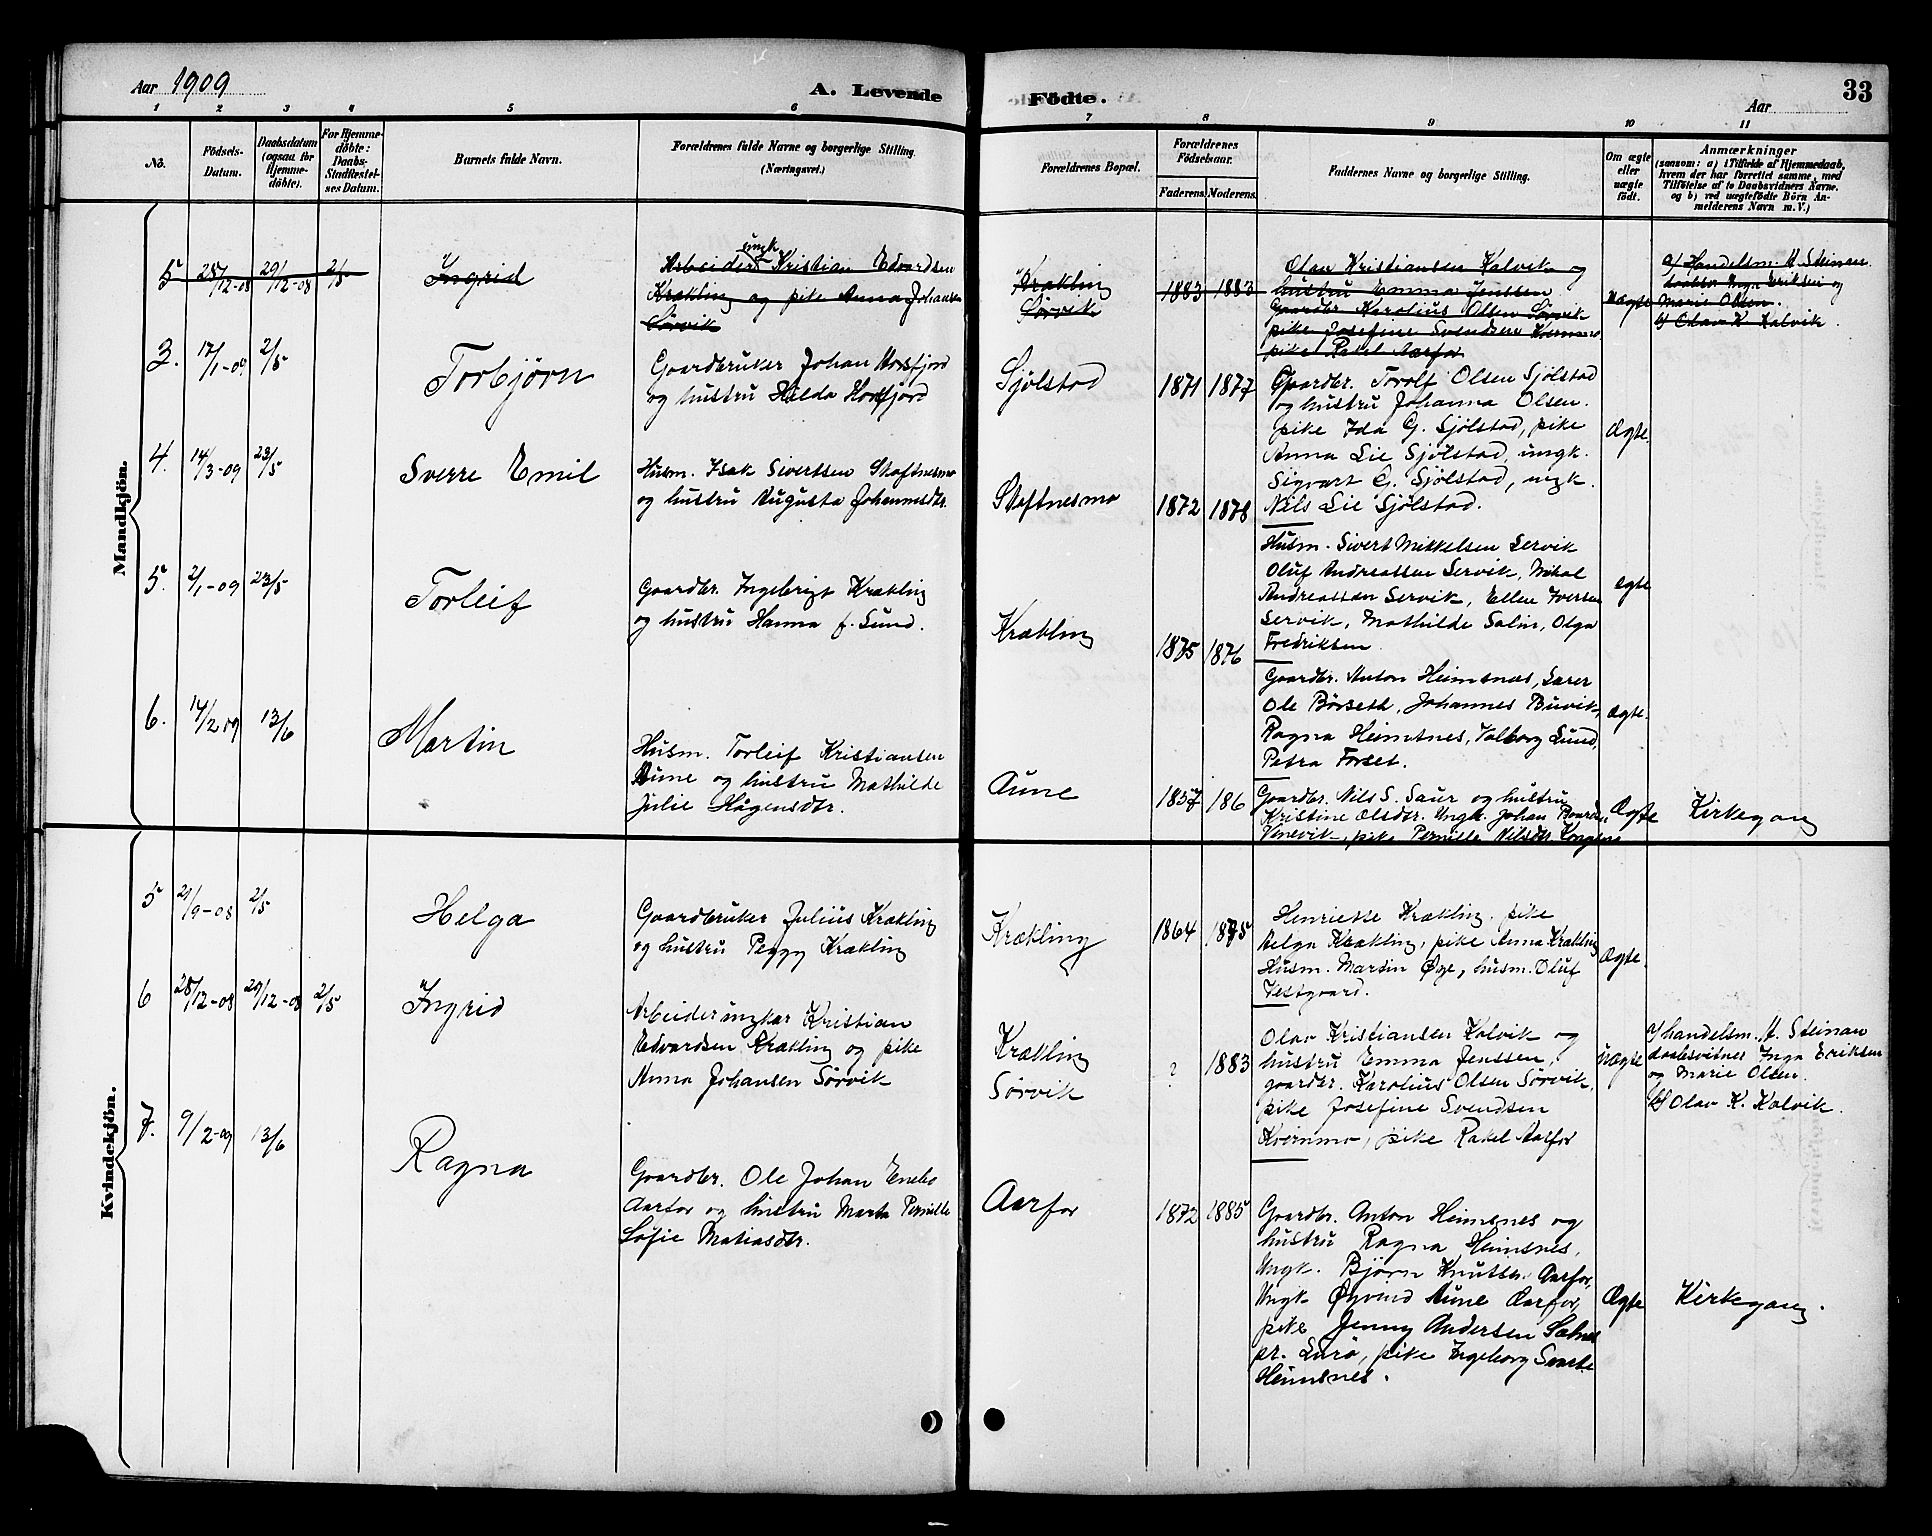 Aar 1909
A. Levende
Födte.
33
Aar
1 2 3 4 5 6 7 8 9 10 11
No.
Födsels-
Datum.
Daabsdatum
(ogsaa for
Hjemme-
döbte).
For Hjemme-
döbte:
Daabs-
Stadfæstel-
ses Datum.
Barnets fulde Navn.
Forældrenes fulde Navne og borgerlige Stilling.
(Næringsvei.)
Forældrenes Bopæl.
Forældrenes
Födselsaar.
Faderens. Moderens.
Faddernes Navne og borgerlige Stilling.
Om ægte
eller
uægte
födt.
Anmærkninger
(saasom: a) i Tilfælde af Hjemmedaab,
hvem der har forrettet samme, med
Tilföielse af to Daabsvidners Navne,
og b) ved uægtefödte Börn An-
melderens Navn m. V.)
Mandkjön.
5 28/12-08 29/12-08 2/5
Ingrid
ungk
Arbeider Kristian Edvardsen
Krækling og pike Anna Johansen
Sørvik
Krækling
Sørvik
1883 1883
Olav Kristiansen Kalvik og
hustru Emma Jenssen
Gaardbr. Karolius Olsen Sørvik
pike Josefine Svendsen
pike Rakel Aarfor
uægte
a/ Handelsm. A Steinan
Inga Eriksen og
Marie Olsen.
b/ Olav K Kalvik.
3. 17/1-09 2/5
Torbjørn
Gaardbruker Johan Horsfjord
og hustru Hilda Horsfjord
Sjølstad
1871 1877
Gaardbr. Torolf Olsen Sjølstad
og hustru Johanna Olsen.
pike Ida G. Sjølstad, pike
Anna Lie Sjølstad, ungk.
Sigvart G. Sjølstad, ungk.
Nils Lie Sjølstad.
Ægte.
4. 14/3-09 23/5
Sverre Emil
Husm. Isak Sivertsen Staftnesmo
og hustru Augusta Johannesdtr.
Staftnesmo
1872 1878
Husm. Sivert Mikkelsen Servik
Oluf Andreassen Servik, Mikal
Andreassen Servik, Ellen Iversen
Servik, Mathilde Salin, Olga
Fredriksen
ægte
5. 2/1-09 23/5
Torleif
Gaardbr. Ingebrigt Krækling
og hustru Hanna f. Lund.
Krækling
1875 1876
Gaardbr. Anton Heimsnæs, Lærer
Ole Børseth, Johannes Buvik,
Ragna Heimsnes, Valborg Lund,
Petra Forset.
ægte.
6. 14/2 09 13/6
Martin
Husm. Torleif Kristiansen
Aune og hustru Mathilde
Julie Hågensdtr.
Aune
1857 186
Gaardbr. Nils S. Saur og hustru
Kristine Olsdtr. Ungk. Johan
pike Pernille Nilsdtr.
Ægte
Kirkegang
Kvindekjön.
5 21/9-08 2/5
Helga
Gaardbruker Julius Krækling
og hustru Peggy Krækling
Krækling
1864 1875
Henriette Krækling. pike
Helga Krækling, pike Anna Krækling
Husm. Martin Øye, husm. Oluf
Vestgaard.
Ægte.
6 28/12-08 29/12-08 2/5
Ingrid
Arbeider ungkar Kristian
Edvardsen Krækling og pike
Anna Johansen Sørvik
Krækling
Sørvik
? 1883
Olav Kristiansen Kalvik og
hustru Emma Jenssen,
gaardbr. Karolius Olsen Sørvik,
pike Josefine Svendsen
Kvernmo, pike Rakel Aarfor
uægte
a/ handelsm. A. Steinan
daabsvidner Inga Eriksen
og Marie Olsen.
b/ Olav K. Kalvik.
7. 9/2-09 13/6
Ragna
Gaardbr. Ole Johan Enebo
Aarfor og hustru Marta Pernille
Sofie Matiasdtr.
Aarfor
1872 1885
Gaardbr. Anton Heimsnes og
hustru Ragna Heimsnes,
Ungk. Bjørn Knutsen Aarfor,
Ungk Øyvind Aune Aarfor,
pike Jenny Andersen
pr. Lurø, pike Ingeborg
Heimsnes.
Ægte
Kirkegang.